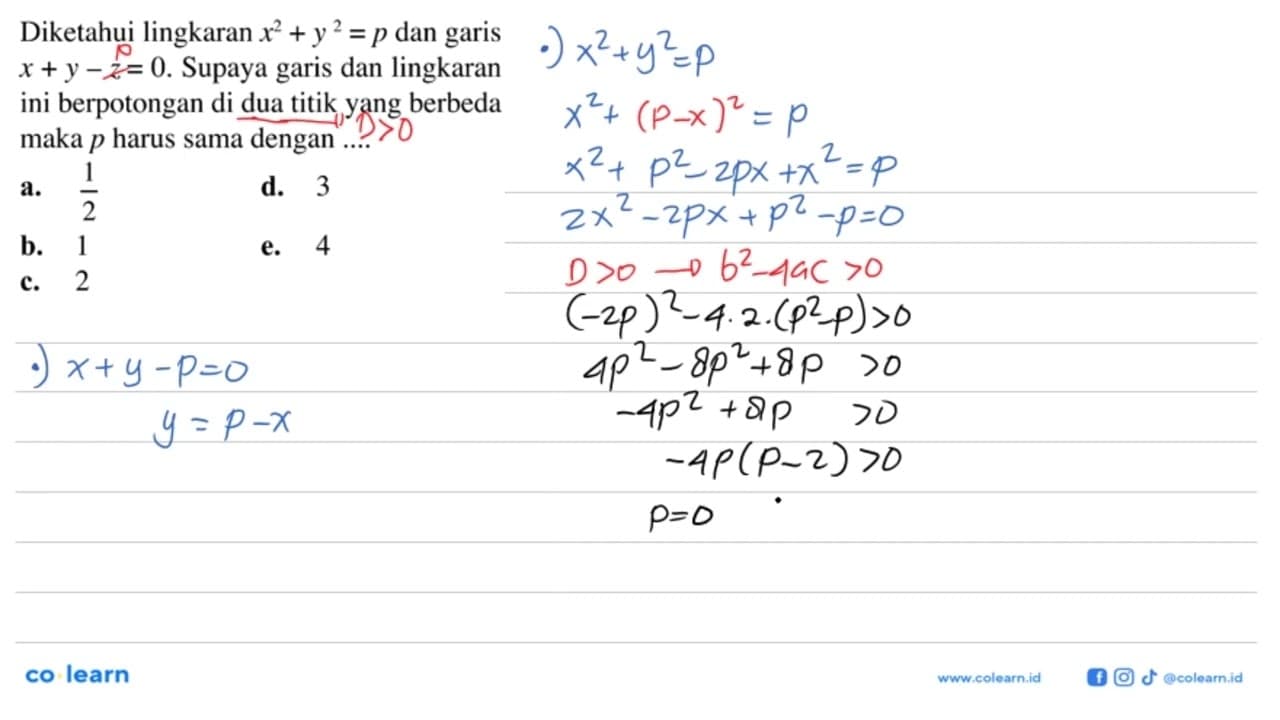 Diketahui lingkaran x² + y² = p dan garis
p
x + y – z = 0. Supaya garis dan lingkaran
ini berpotongan di dua titik yang berbeda
maka p harus sama dengan .... D>0
a. 1/2
d. 3
b. 1
e. 4
c. 2
•) x+y-p=0
y = p-x
•) x²+y²=p
x²+ (p-x)² = p
x²+ p²-2px+x²=p
2x²-2px+p²-p=0
D>0 → b²-4ac >0
(-2p)²-4.2.(p²-p)>0
4p²-8p²+8p >0
-4p²+8p >0
-4p(p-2)>0
p=0
co learn
www.colearn.id
@colearn.id